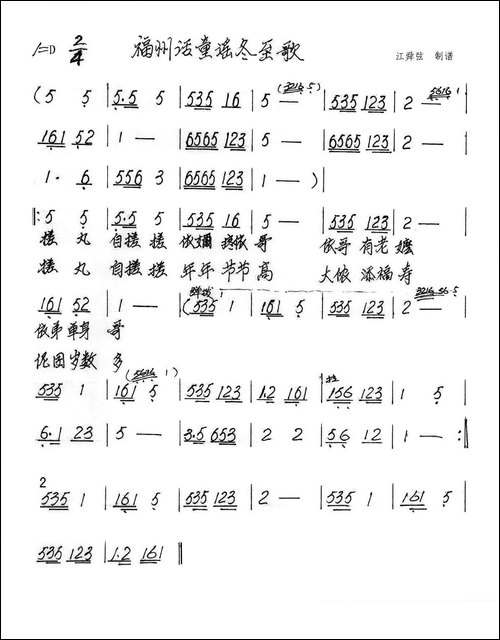 1=D 2/4 福州话童谣冬至歌 江舜弦 制谱
( 5 5 | 5·5 5 | 535 16 | 5 — (3216 5) | 535 123 | 2 — 5616 1
161 52 | 1 — | 6565 123 | 5 — | 6565 123 | 2 — |
1· 6 | 556 3 | 6565 123 | 1 — ) |
|: 5 5 | 5·5 5 | 535 16 | 5 — | 535 123 | 2 — |
搓 丸 自搓 搓 依嫲 疼依 哥 依哥 有老 嬷
搓 丸 自搓 搓 年年 节节 高 大依 添福 寿
161 52 | 1 — | (535 1 | 161 5 | 535 123 | 2 — 3216 56 5
依弟 单身 哥
伲囝 岁数 多
535 1 | 161 5 (5616 1) | 535 123 | 1·2 161 | 156 123 | 1 5 |
6·1 23 | 5 — | 3·5 653 | 2 2 | 56 12 | 1 — :||
2
535 1 | 161 5 | 535 123 | 2 — | 535 1 | 161 5 |
535 123 | 1·2 161 ||